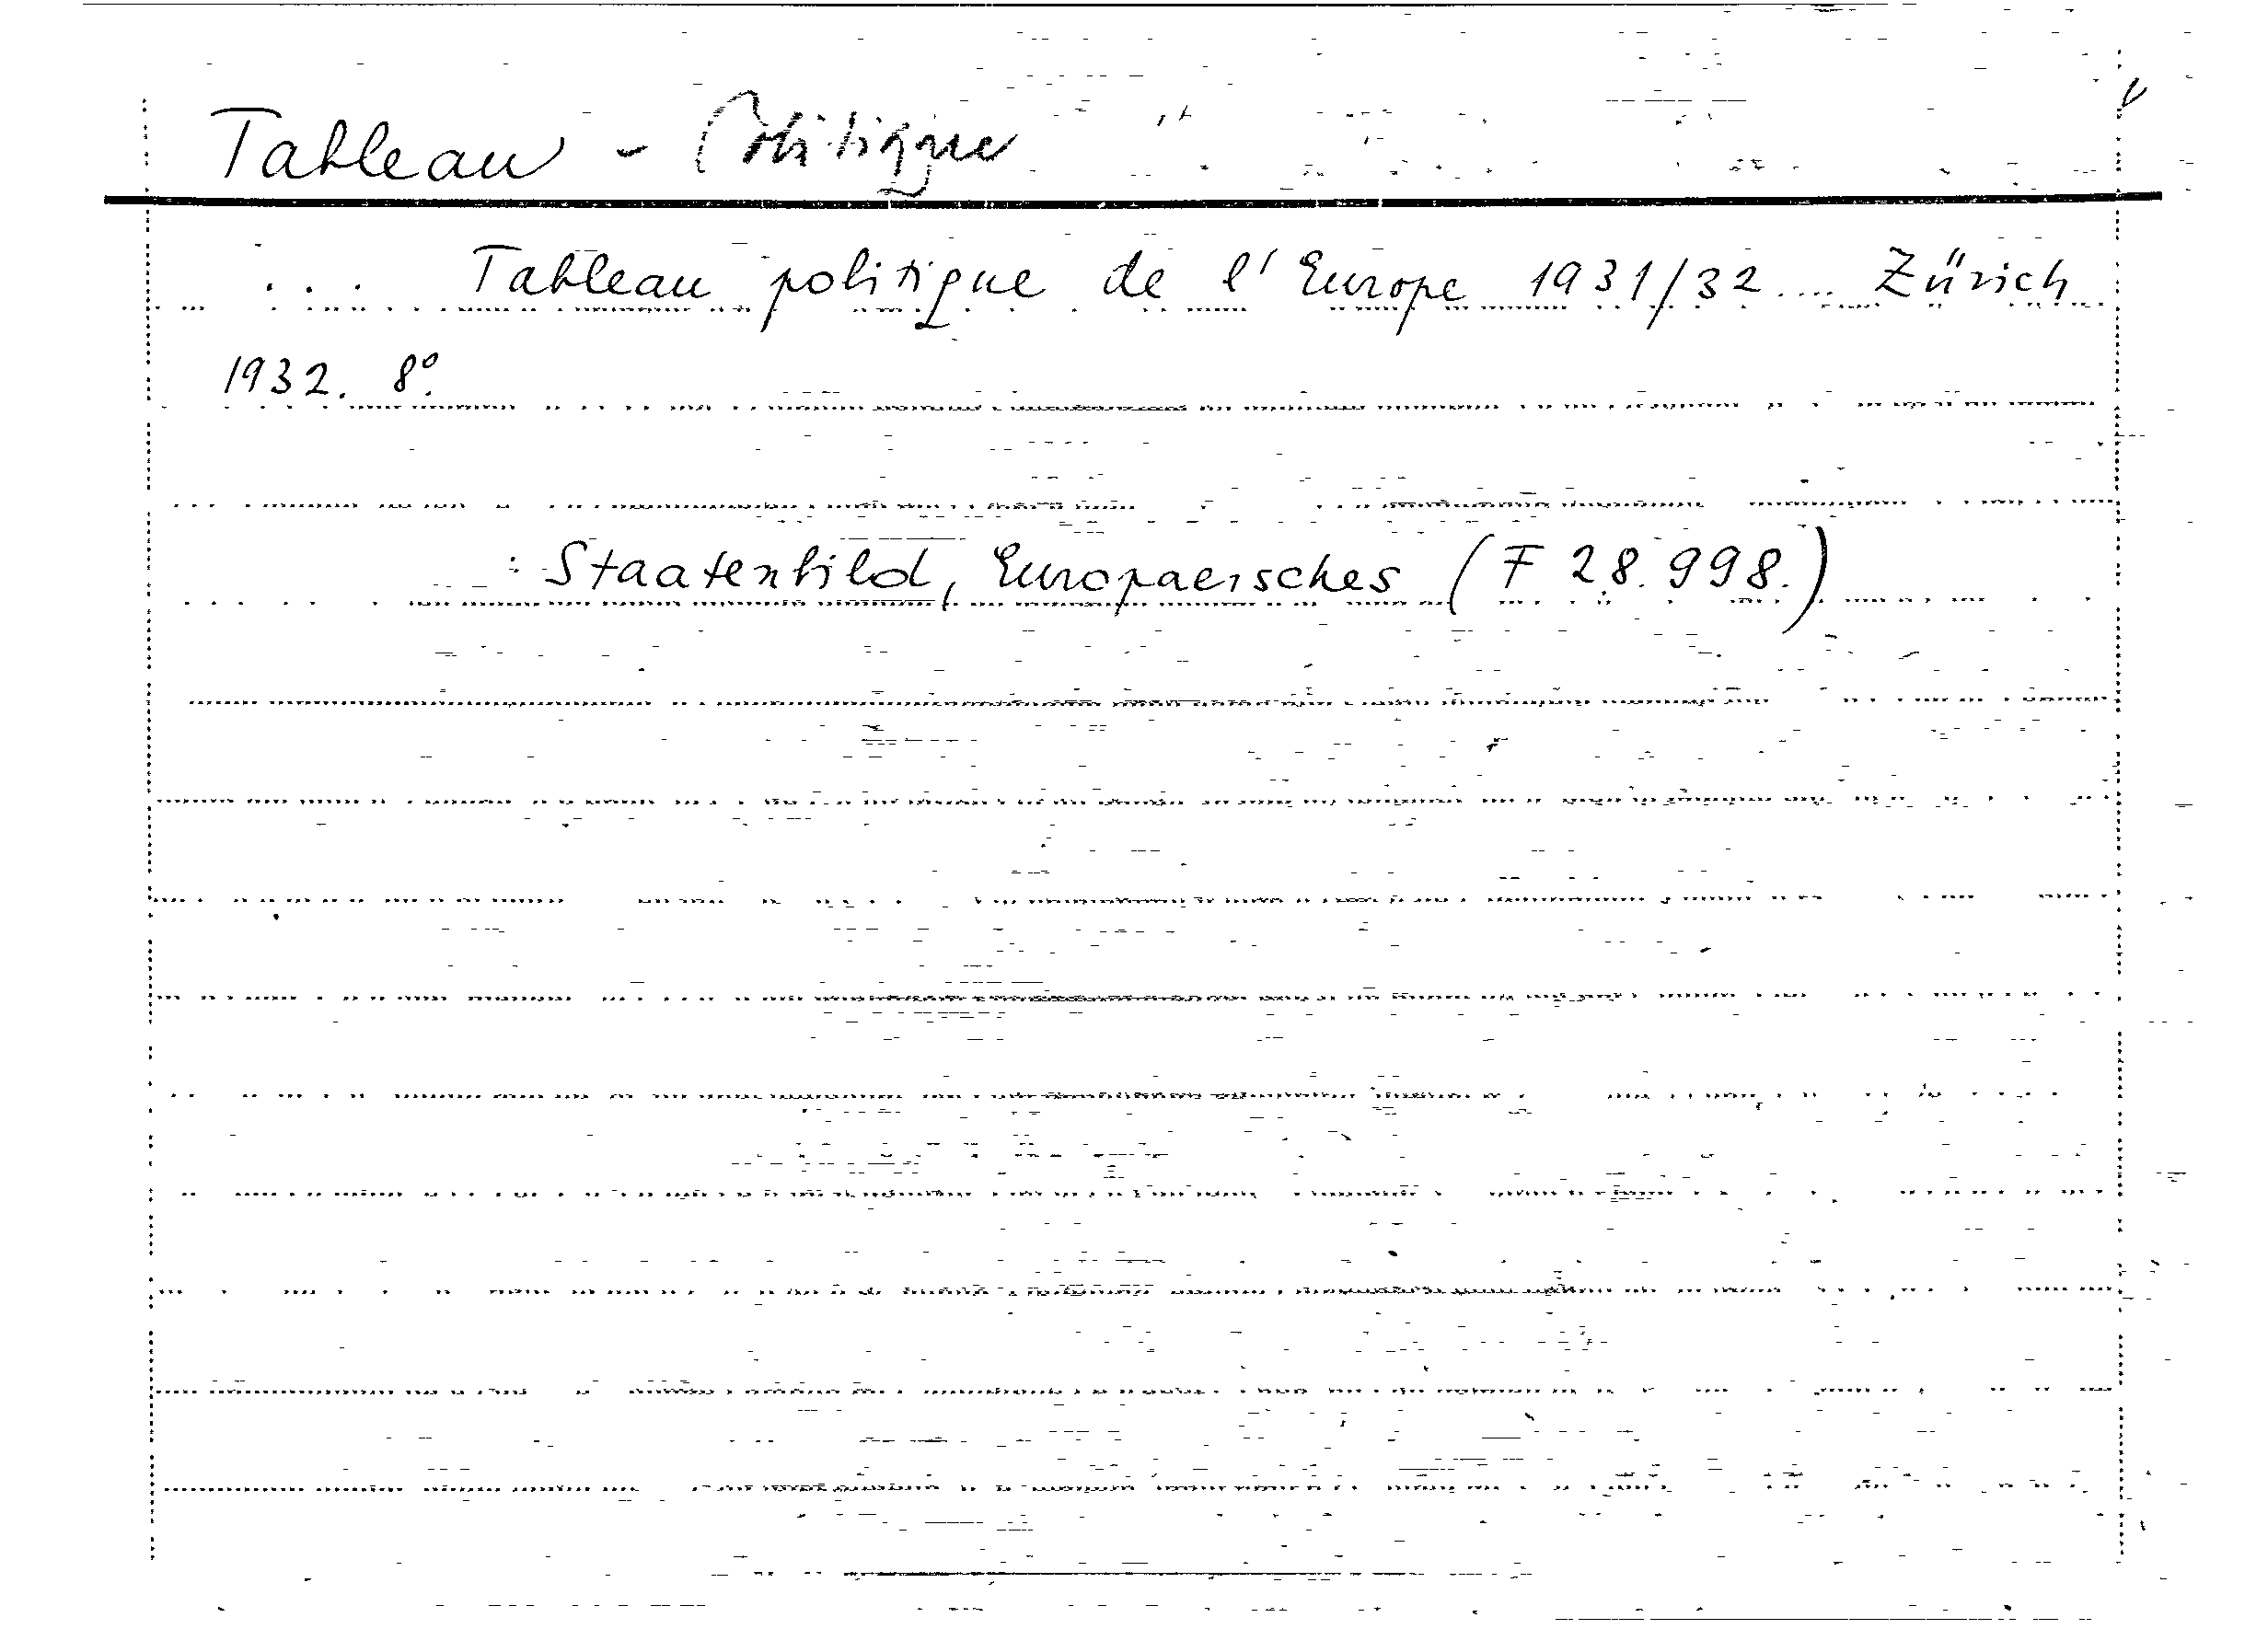 Tableau - Politique
... Tableau politique de l'Europe 1931/32 ... Zürich
1932. 8º.
: Staatenbild, Europaeisches (F 28.998.)